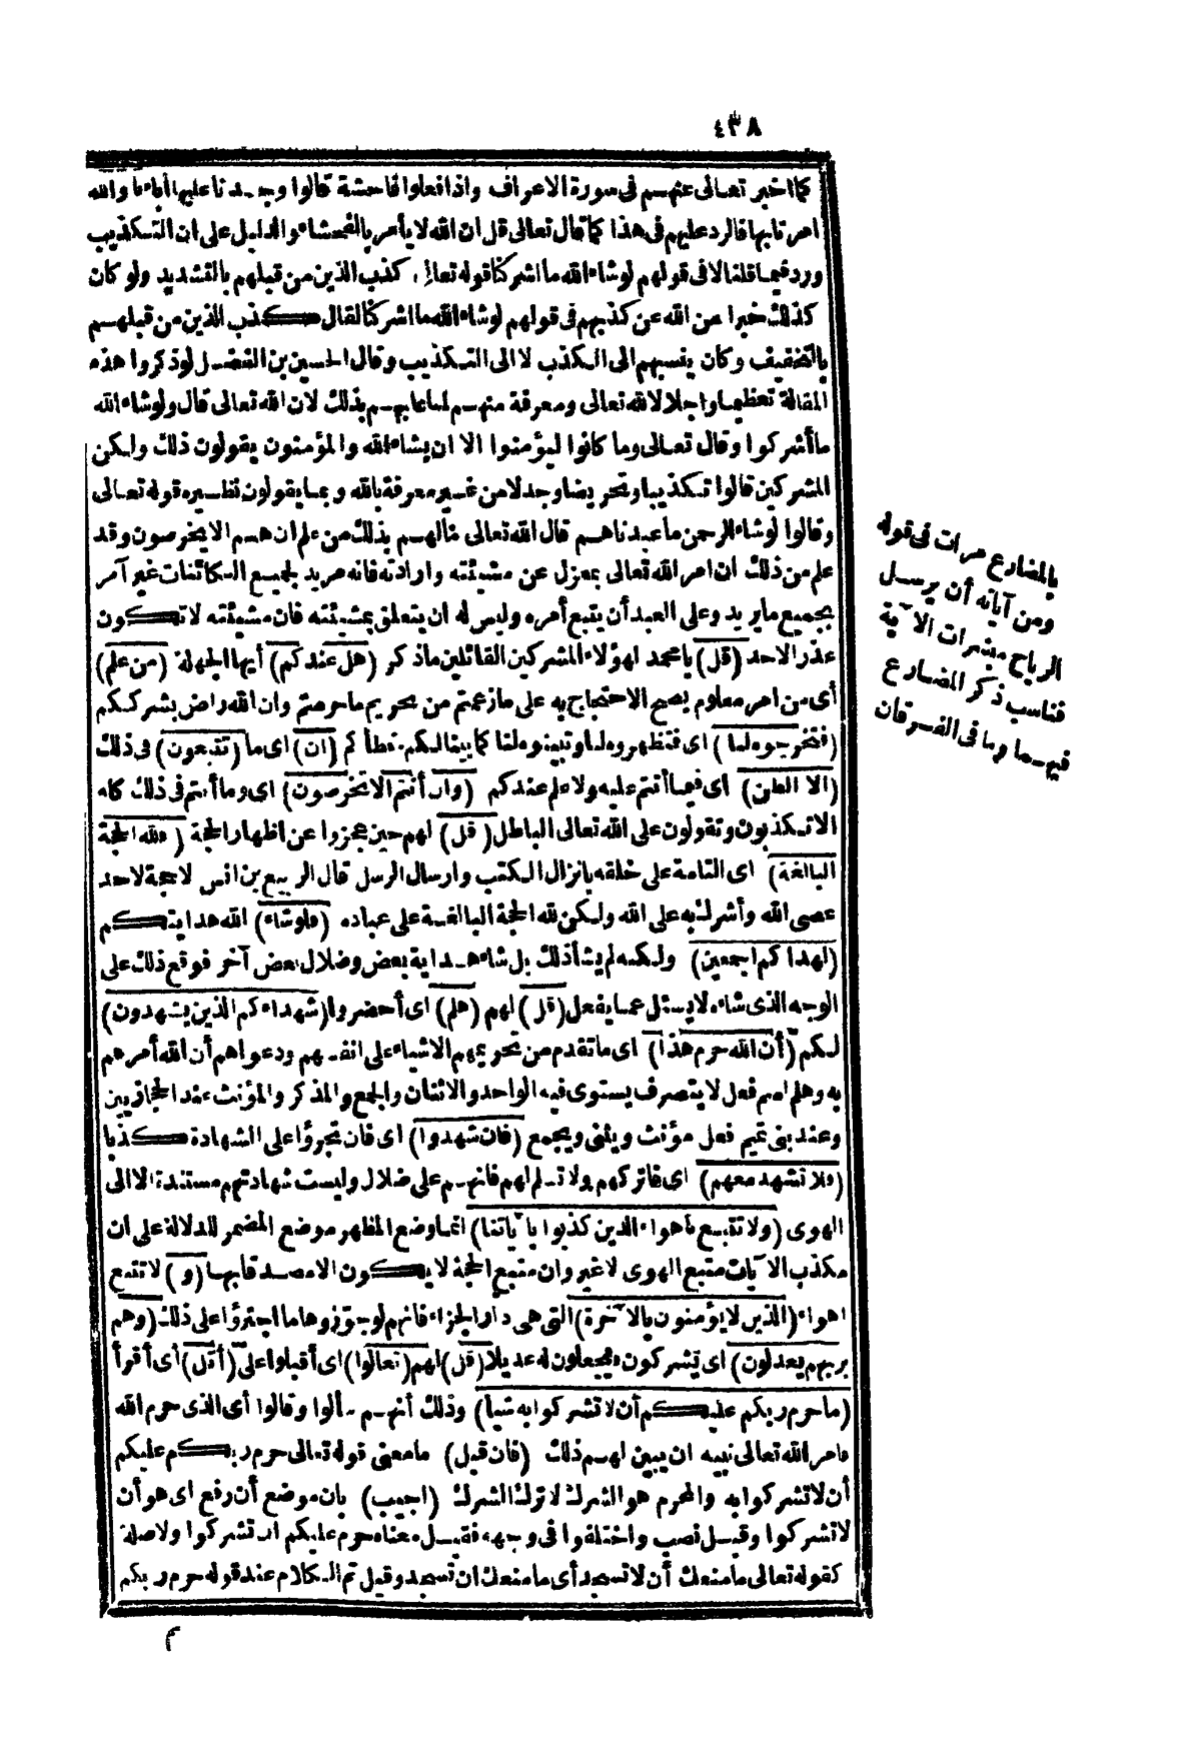 ٤٣٨
كما اخبر تعالى عنهم فى سورة الاعراف واذا فعلوا فاحشة قالوا وجدنا عليها آباءنا والله
امرنا بها فالرد عليهم فى هذا كما قال تعالى قل ان الله لا يأمر بالفحشاء والدليل على ان التكذيب
ورد فيما قلنا لا فى قولهم لوشاء الله ما اشركنا قوله تعالى كذب الذين من قبلهم بالتشديد ولو كان
كذلك خبرا عن الله عن كذبهم فى قولهم لوشاء الله ما اشركنا لقال كذب الذين من قبلهم
بالتخفيف وكان ينسبهم الى الكذب لا الى التكذيب وقال الحسين بن الفضل لو ذكروا هذه
المقالة تعظيما واجلالا لله تعالى ومعرفة منهم لما عابهم بذلك لان الله تعالى قال ولو شاء الله
ما أشركوا وقال تعالى وما كانوا ليؤمنوا الا ان يشاء الله والمؤمنون يقولون ذلك ولكن
المشركين قالوا تكذيبا وتحريضا وجدلا من غير معرفة بالله وبما يقولون نظيره قوله تعالى
وقالوا لوشاء الرحمن ما عبدناهم قال الله تعالى مالهم بذلك من علم ان هم الا يخرصون وقد
علم من ذلك ان امر الله تعالى بمعزل عن مشيئته وارادته فانه مريد لجميع الكائنات غير آمر
بجميع ما يريد وعلى العبد أن يتبع أمره وليس له ان يتعلق بمشيئته فان مشيئته لا تكون
عذرا لاحد (قل) يا محمد لهؤلاء المشركين القائلين ماذكر (هل عندكم) أيها الجهلة (من علم)
أى من امر معلوم يصح الاحتجاج به على ما زعمتم من تحريم ما حرمتم وان الله راض بشرككم
(فتخرجوه لنا) اى فتظهروه لنا وتبينوه لنا كما بينا لكم خطأكم (ان) اى ما (تتبعون) فى ذلك
(الا الظن) اى فيما أنتم عليه ولا علم عندكم (وان أنتم الا تخرصون) اى وما أنتم فى ذلك كله
الا تكذبون وتقولون على الله تعالى الباطل (قل) لهم حين عجزوا عن اظهار الحجة (فلله الحجة
البالغة) اى التامة على خلقه بانزال الكتب وارسال الرسل قال الربيع بن انس لا حجة لاحد
عصى الله وأشرك به على الله ولكن لله الحجة البالغة على عباده (فلو شاء) الله هدايتكم
(لهداكم اجمعين) ولكنه لم يشأ ذلك بل شاء هداية بعض وضلال بعض آخر فوقع ذلك على
الوجه الذى شاء لا يسئل عما يفعل (قل) لهم (هلم) اى أحضروا (شهداءكم الذين يشهدون)
لكم (أن الله حرم هذا) اى ما تقدم من تحريمهم الاشياء على انفسهم ودعواهم أن الله أمرهم
به وهلم اسم فعل لا يتصرف يستوى فيه الواحد والاثنان والجمع والمذكر والمؤنث عند الحجازيين
وعند بنى تميم فعل مؤنث ويثنى ويجمع (فان شهدوا) اى فان تجرؤا على الشهادة كذبا
(فلا تشهد معهم) اى فاتركهم ولا تسلم لهم فانهم على ضلال وليست شهادتهم مستندة الا الى
الهوى (ولا تتبع أهواء الذين كذبوا بآياتنا) انما وضع المظهر موضع المضمر للدلالة على ان
مكذب الآيات متبع الهوى لا غير وان متبع الحجة لا يكون الا مصدقا بها (و) لا تتبع
اهواء (الذين لا يؤمنون بالآخرة) التى هى دار الجزاء فانهم لو جوزوها ما اجترؤا على ذلك (وهم
بربهم يعدلون) اى يشركون فيجعلون له عديلا (قل) لهم (تعالوا) اى أقبلوا علىّ (أتل) أى أقرأ
(ما حرم ربكم عليكم أن لا تشركوا به شيأ) وذلك أنهم سألوا وقالوا أى الذى حرم الله
فامر الله تعالى نبيه ان يبين لهم ذلك (فان قيل) ما معنى قوله تعالى حرم ربكم عليكم
أن لا تشركوا به والمحرم هو الشرك لا ترك الشرك (اجيب) بان موضع أن رفع اى هو أن
لا تشركوا وقيل نصب واختلفوا فى وجهه فقيل معناه حرم عليكم ان تشركوا ولا صلة
كقوله تعالى ما منعك أن لا تسجد أى ما منعك ان تسجد وقيل تم الكلام عند قوله حرم ربكم
بالمضارع مرات فى قوله
ومن آياته أن يرسل
الرياح مبشرات الآية
فناسب ذكر المضارع
فيهما وما فى الفرقان